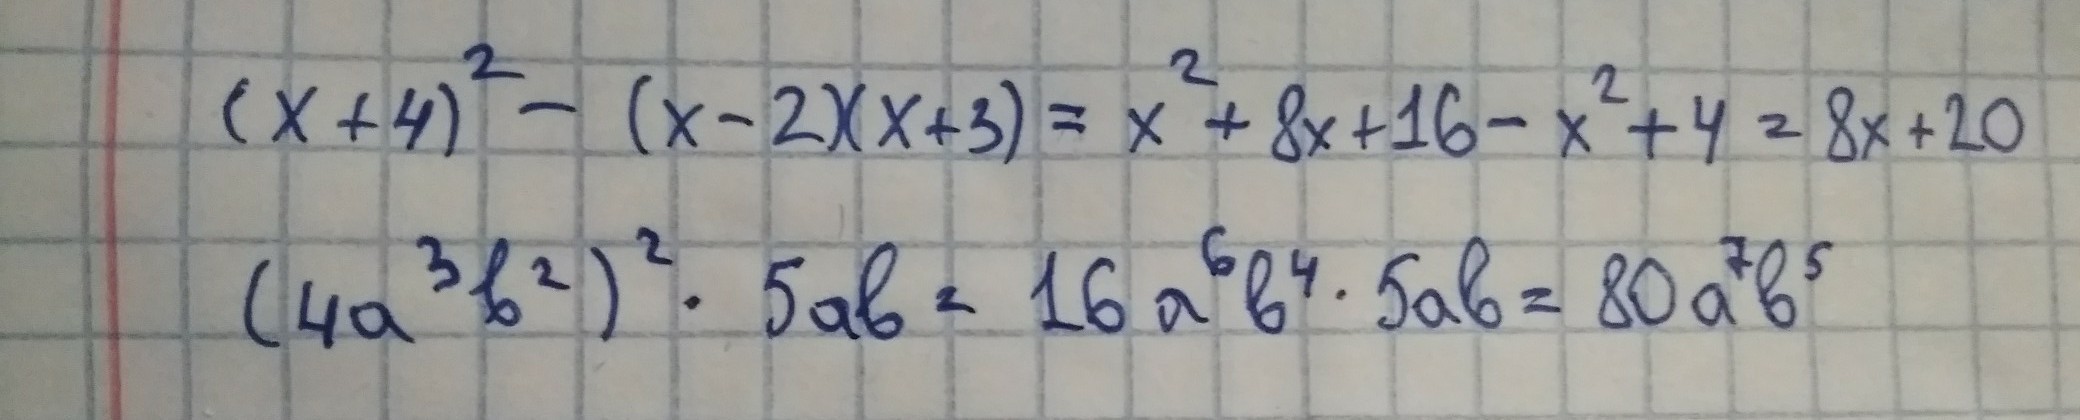 (x+4)² - (x-2)(x+3) = x² + 8x + 16 - x² + 4 = 8x + 20
(4a³b²)² · 5ab = 16a⁶b⁴ · 5ab = 80a⁷b⁵